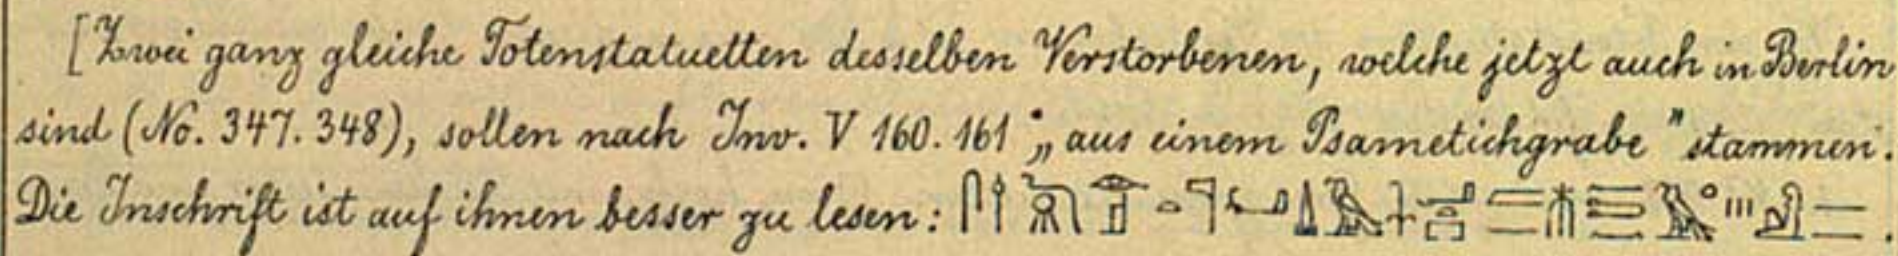 [Zwei ganz gleiche Totenstatuetten desselben Verstorbenen, welche jetzt auch in Berlin
sind (No. 347. 348), sollen nach Inv. V 160. 161 „aus einem Psametichgrabe" stammen.
Die Inschrift ist auf ihnen besser zu lesen: